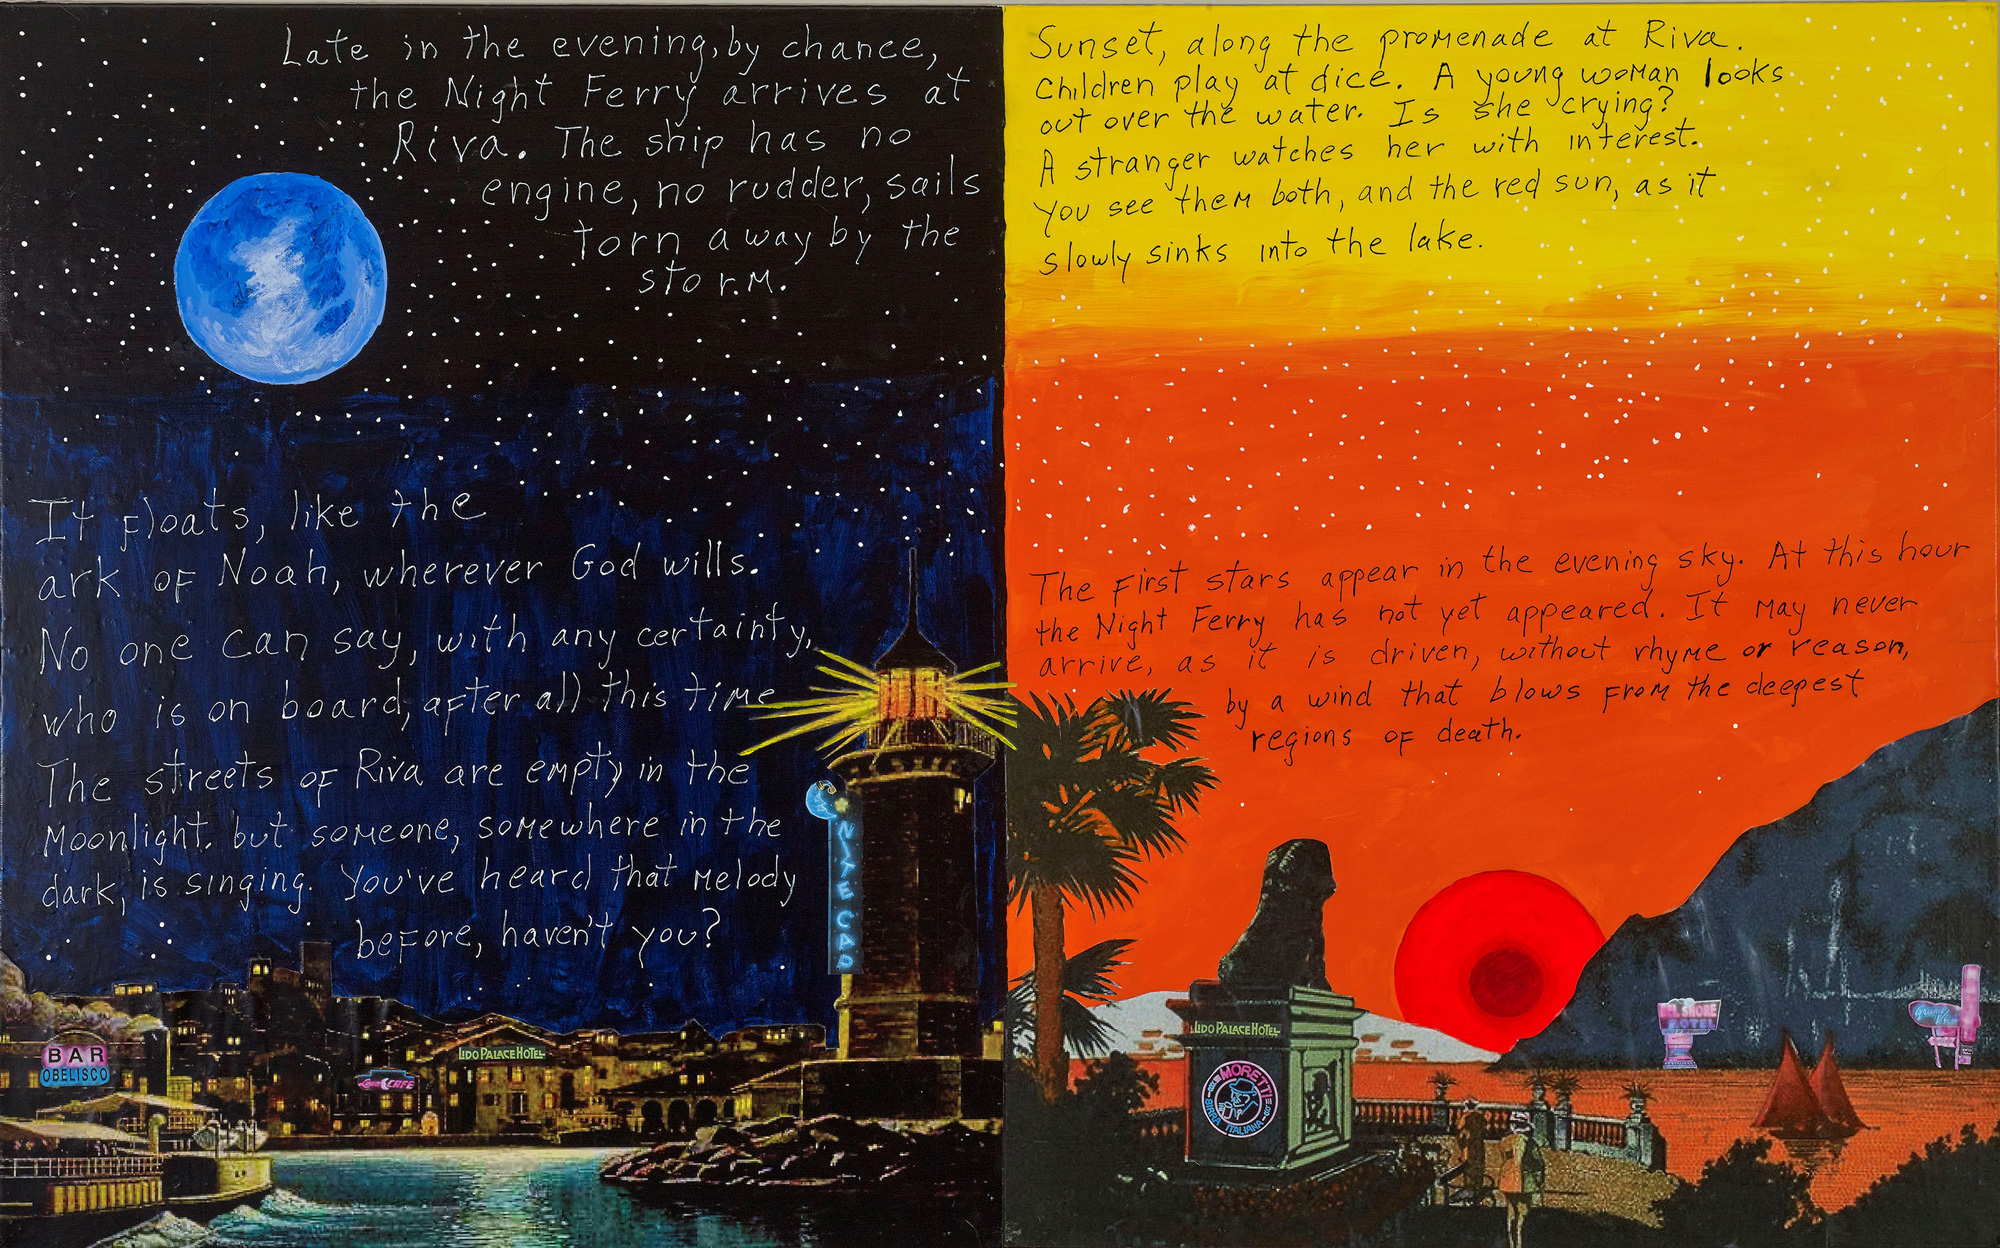 Late in the evening, by chance,
the Night Ferry arrives at
Riva. The ship has no
engine, no rudder, sails
torn away by the
storm.
It floats, like the
ark of Noah, wherever God wills.
No one can say, with any certainty,
who is on board, after all this time
The streets of Riva are empty in the
Moonlight. but someone, somewhere in the
dark, is singing. You've heard that melody
before, haven't you?
NITE CAP
BAR
OBELISCO
LIDO PALACE HOTEL
CAFE
Sunset, along the promenade at Riva.
Children play at dice. A young woman looks
out over the water. Is she crying?
A stranger watches her with interest.
You see them both, and the red sun, as it
slowly sinks into the lake.
The first stars appear in the evening sky. At this hour
the Night Ferry has not yet appeared. It may never
arrive, as it is driven, without rhyme or reason,
by a wind that blows from the deepest
regions of death.
LIDO PALACE HOTEL
MORETTI
BIRRA ITALIANA
BEL SHORE
HOTEL